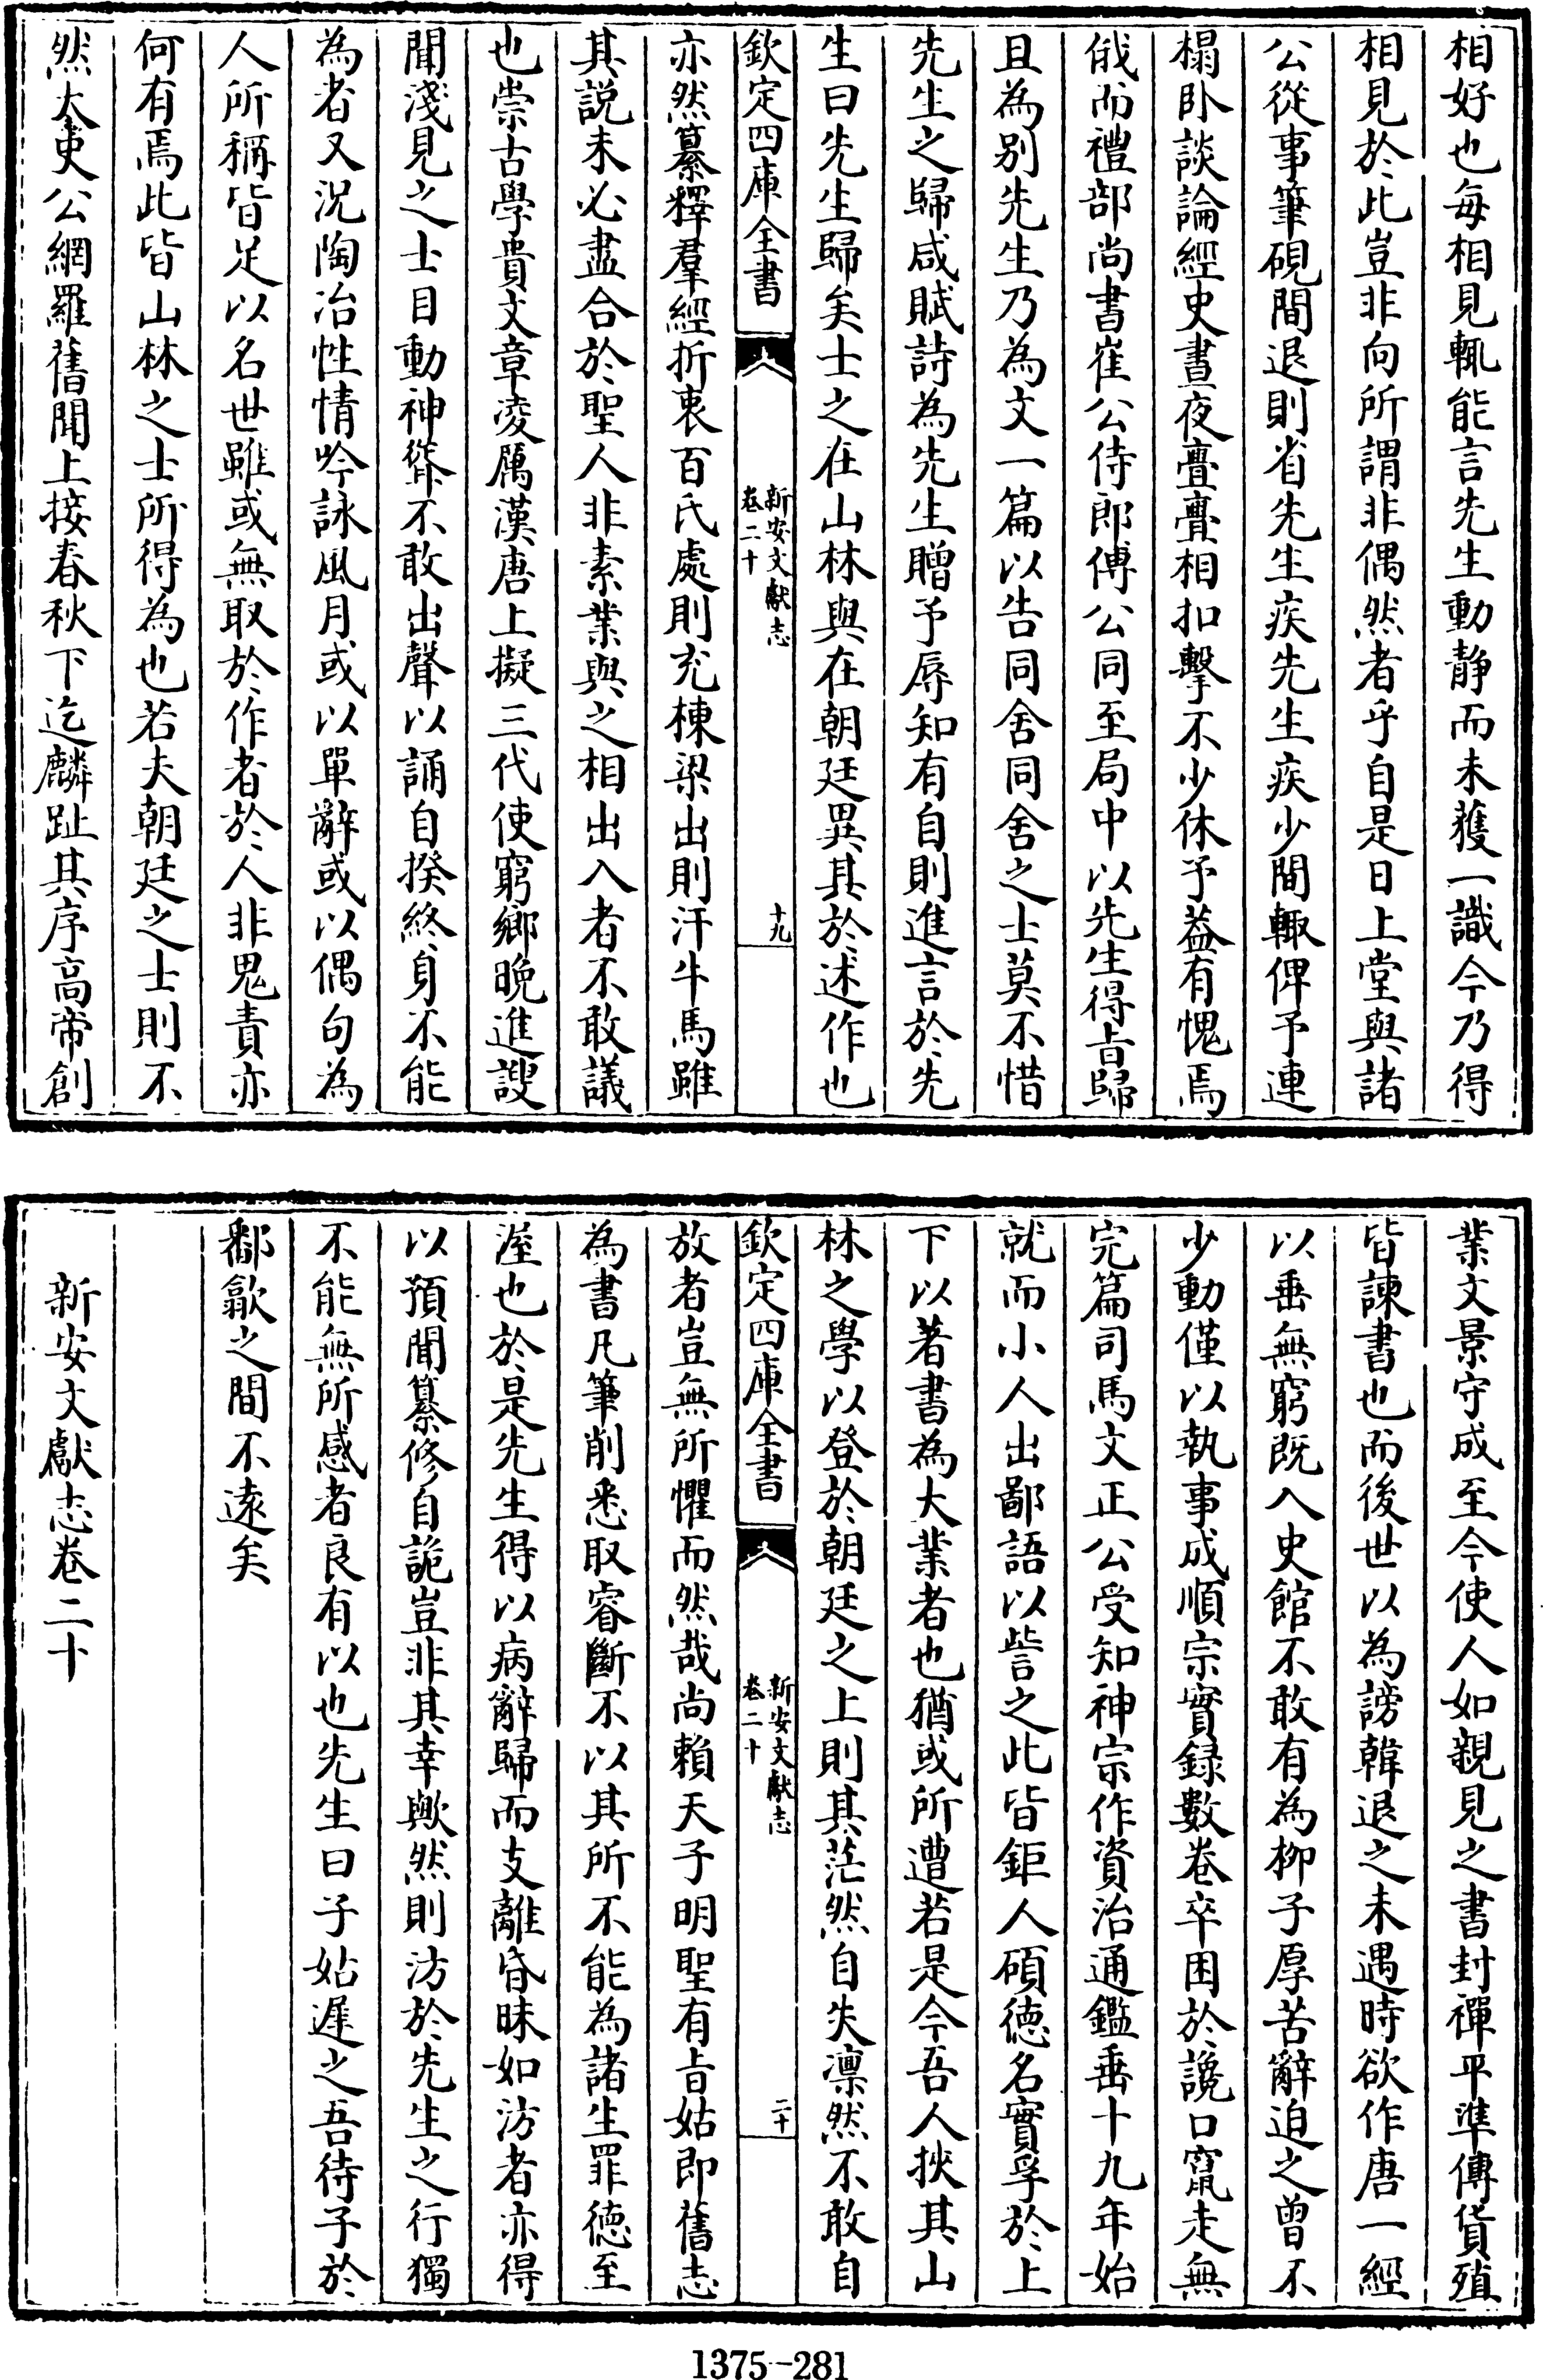 相好也每相見輒能言先生動静而未獲一識今乃得
相見於此豈非向所謂非偶然者乎自是日上堂與諸
公從事筆硯間退則省先生疾先生疾少間輙俾予連
榻卧談論經史晝夜亹亹相扣擊不少休予葢有愧焉
俄而禮部尚書崔公侍郎傅公同至局中以先生得㫖歸
且為别先生乃為文一篇以告同舍同舍之士莫不惜
先生之歸咸賦詩為先生贈予辱知有自則進言於先
生曰先生歸矣士之在山林與在朝廷異其於述作也
欽定四庫全書
新安文獻志
卷二十
十九
亦然纂釋羣經折衷百氏處則充棟梁出則汗牛馬雖
其説未必盡合於聖人非素業與之相出入者不敢議
也崇古學貴文章凌厲漢唐上擬三代使窮鄉晚進謏
聞淺見之士目動神聳不敢出聲以誦自揆終身不能
為者又況陶冶性情吟詠風月或以單辭或以偶句為
人所稱皆足以名世雖或無取於作者於人非鬼責亦
何有焉此皆山林之士所得為也若夫朝廷之士則不
然太史公網羅舊聞上接春秋下迄麟趾其序高帝創
業文景守成至今使人如親見之書封禪平準傳貨殖
皆諫書也而後世以為謗韓退之未遇時欲作唐一經
以垂無窮既入史館不敢有為柳子厚苦辭迫之曾不
少動僅以執事成順宗實録數卷卒困於讒口竄走無
完篇司馬文正公受知神宗作資治通鑑垂十九年始
就而小人出鄙語以訾之此皆鉅人碩徳名實孚於上
下以著書為大業者也猶或所遭若是今吾人挾其山
林之學以登於朝廷之上則其茫然自失凛然不敢自
欽定四庫全書
新安文獻志
卷二十
二十
放者豈無所懼而然哉尚賴天子明聖有㫖姑即舊志
為書凡筆削悉取睿斷不以其所不能為諸生罪徳至
渥也於是先生得以病辭歸而支離昏昧如汸者亦得
以預聞纂修自詭豈非其幸歟然則汸於先生之行獨
不能無所感者良有以也先生曰子姑遲之吾待子於
鄱歙之間不遠矣
新安文獻志卷二十
1375-281